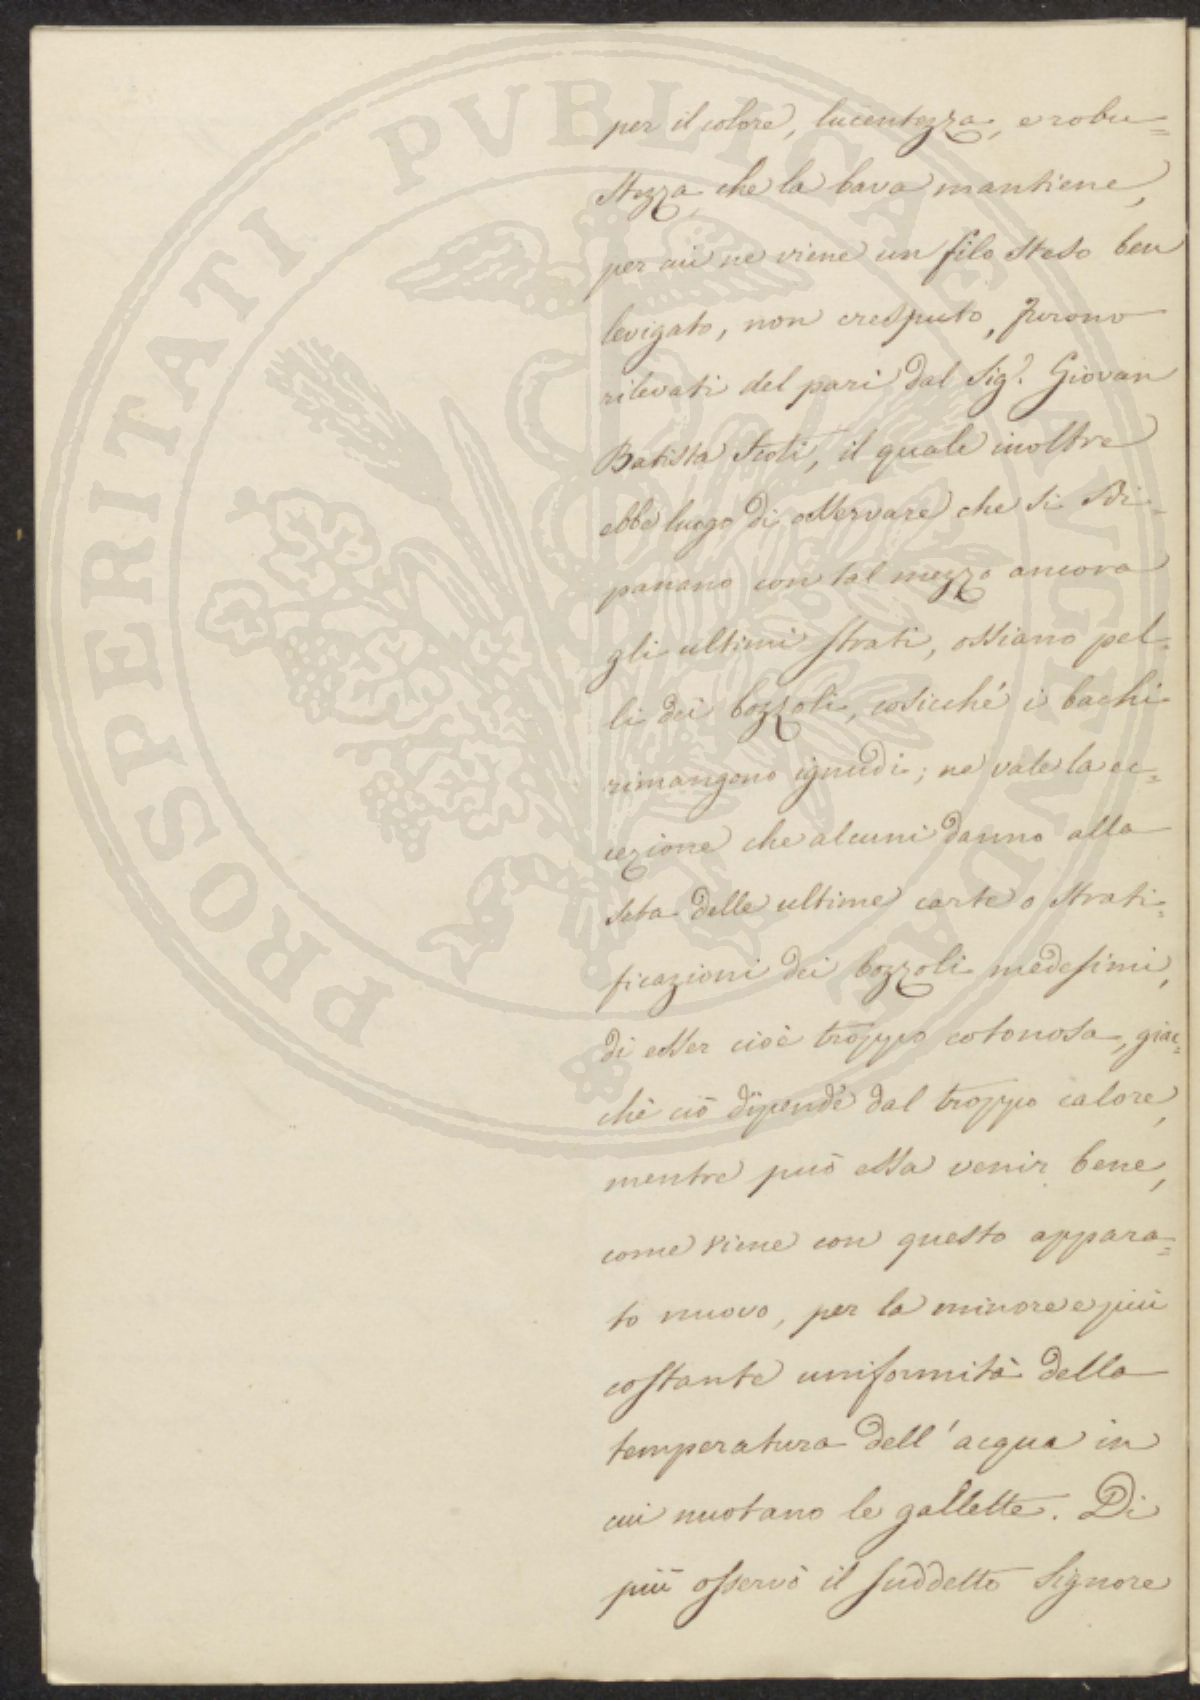 PROSPERITATI PVBLICAE AVGENDAE
per il colore, lucentezza, e robu=
stezza che la bava mantiene,
per cui ne viene un filo steso ben
levigato, non cresputo, furono
rilevati del pari dal Sig.r Giovan
Batista Scoti, il quale inoltre
ebbe luogo di osservare che si di=
panano con tal mezzo ancora
gli ultimi strati, ossiano pel=
li dei bozzoli, cosicché i bachi
rimangono ignudi; ne vale la ec=
cezione che alcuni danno alla
seta delle ultime carte o strati=
ficazioni dei bozzoli medesimi,
di esser cioè troppo cotonosa, giac=
chè ciò dipende dal troppo calore,
mentre può essa venir bene,
come viene con questo appara=
to nuovo, per la minore e più
costante uniformità della
temperatura dell'acqua in
cui nuotano le gallette. Di
più osservò il suddetto Signore